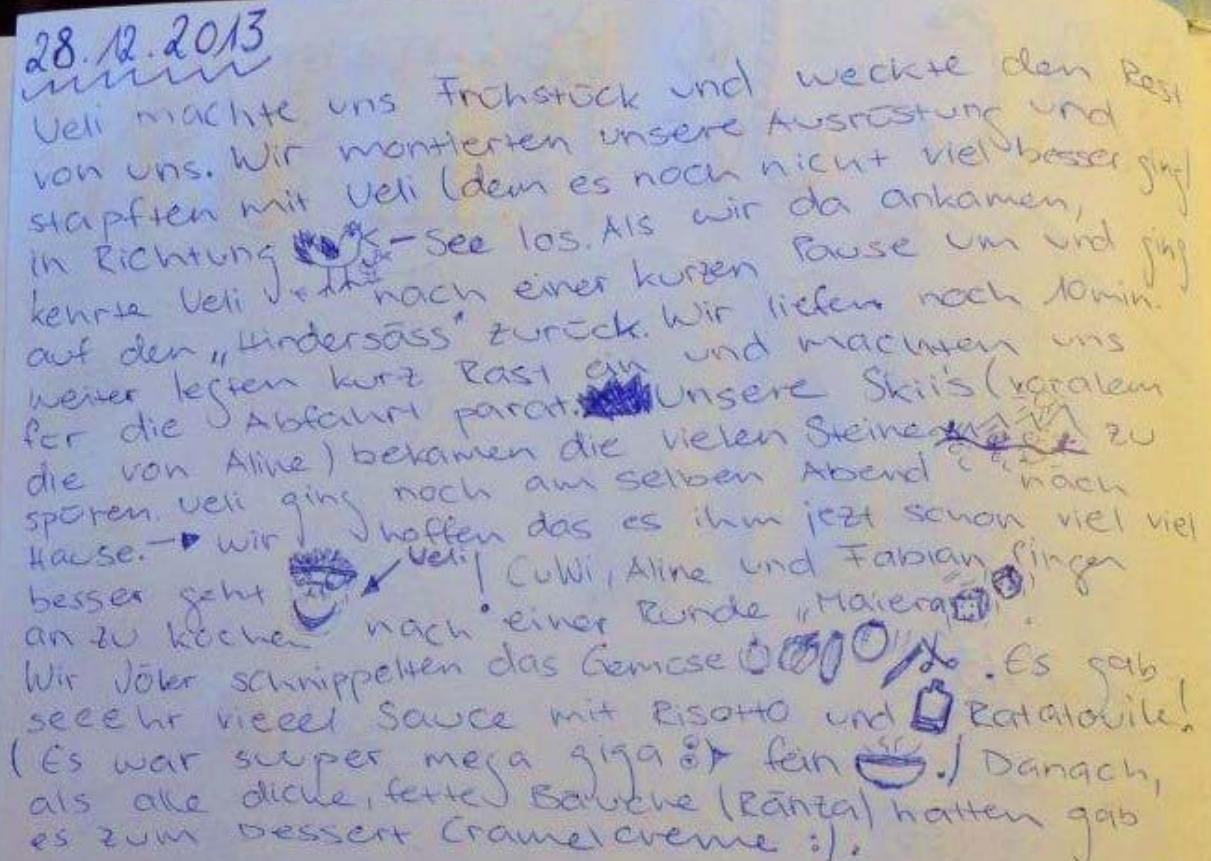 28.12.2013
Ueli machte uns Frühstück und weckte den Rest
von uns. Wir montierten unsere Ausrüstung und
stapften mit Ueli (dem es noch nicht viel besser ging)
in Richtung -See los. Als wir da ankamen,
kehrte Ueli nach einer kurzen Pause um und ging
auf den „Hindersäss" zurück. Wir liefen noch 10min.
weiter legten kurz Rast ein und machten uns
für die Abfahrt parat. Unsere Skii's (voralem
die von Aline) bekamen die vielen Steine zu
spüren. Ueli ging noch am selben Abend nach
Hause. → wir hoffen das es ihm jezt schon viel viel
besser geht Ueli! CuWi, Aline und Fabian fingen
an zu kochen nach einer Runde „Maiera".
Wir Jöler schnippelten das Gemüse. Es gab
seeehr vieeel Sauce mit Risotto und Ratatouile!
(Es war suuper mega giga fein.) Danach,
als alle dicke, fette Bäuche (Ränza) hatten gab
es zum Dessert Cramelcreme :).